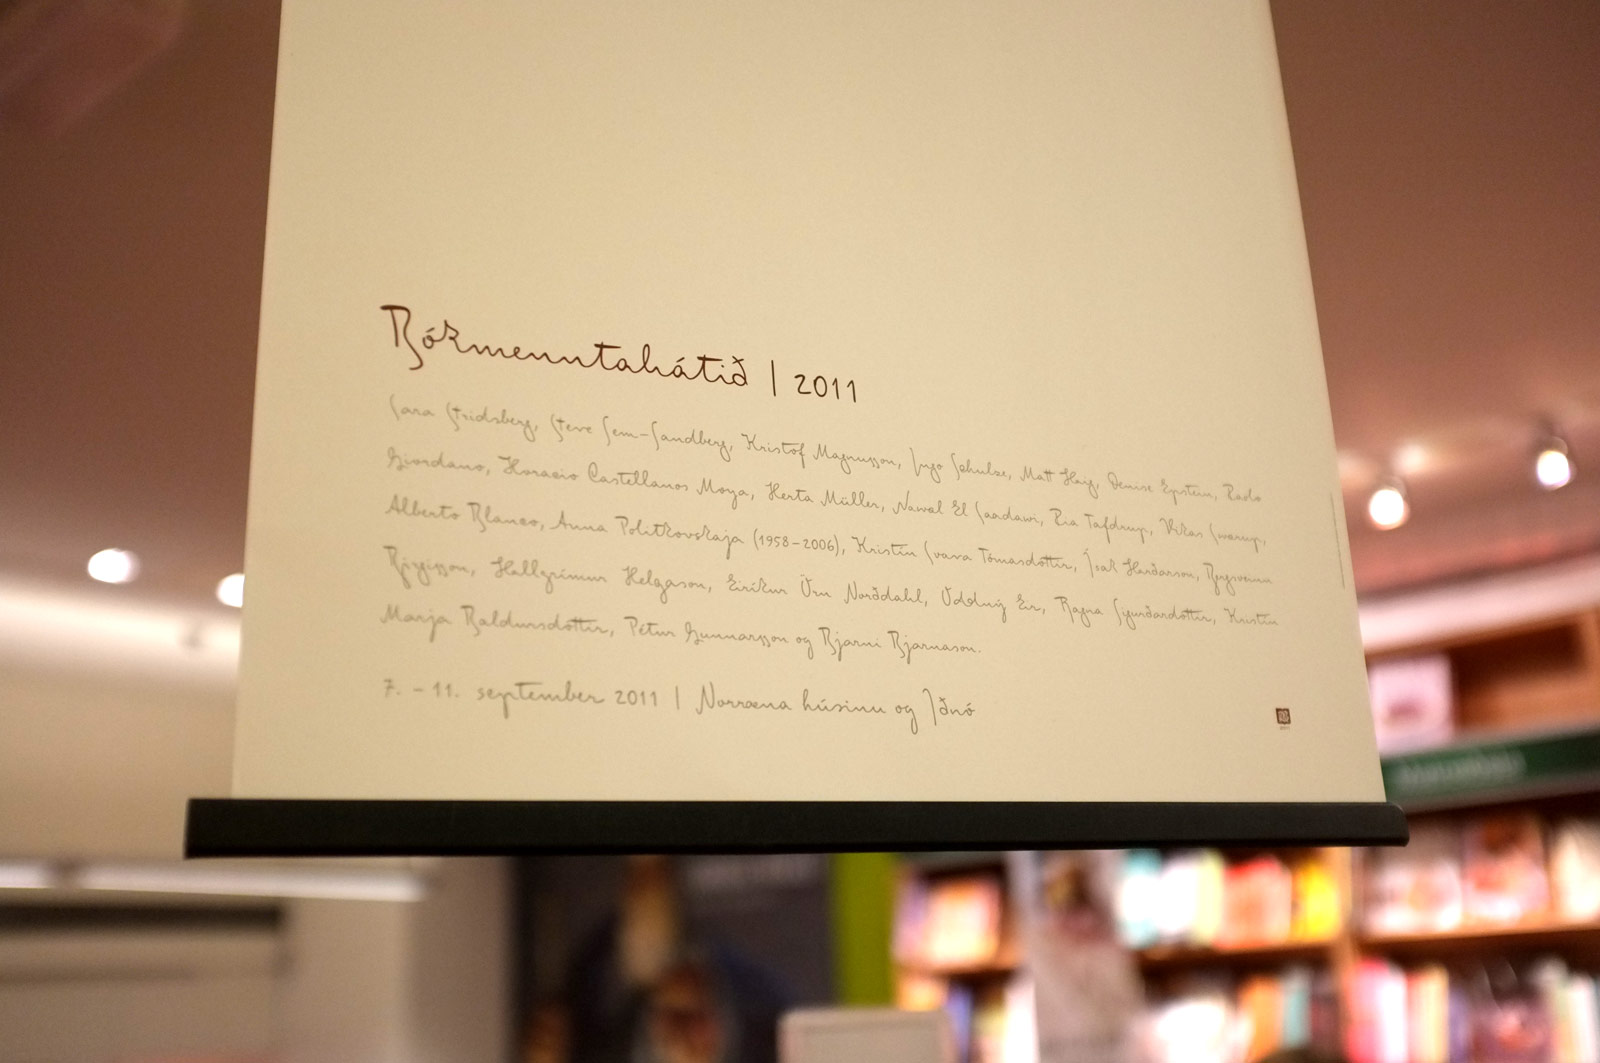 Bókmenntahátíð | 2011
Sara Stridsberg, Steve Sem-Sandberg, Kristof Magnusson, Ingo Schulze, Matt Haig, Denise Epstein, Paolo
Giordano, Horacio Castellanos Moya, Herta Müller, Nawal El Saadawi, Pia Tafdrup, Vikas Swarup,
Alberto Blanco, Anna Politkovskaja (1958-2006), Kristín Svava Tómasdóttir, Ísak Harðarson, Bergsveinn
Birgisson, Hallgrímur Helgason, Eiríkur Örn Norðdahl, Oddný Eir, Ragna Sigurðardóttir, Kristín
Marja Baldursdóttir, Pétur Gunnarsson og Bjarni Bjarnason.
7. - 11. september 2011 | Norræna húsinu og Iðnó